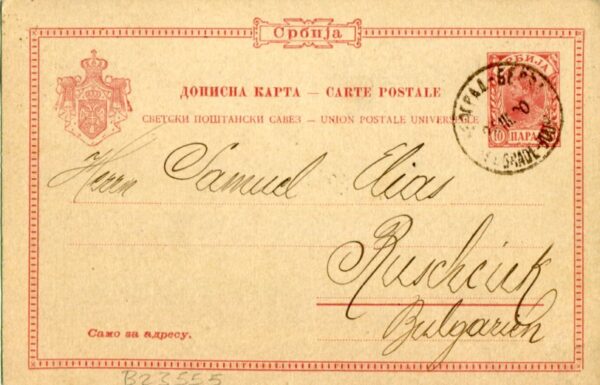 Србија
ДОПИСНА КАРТА — CARTE POSTALE
СВЕТСКИ ПОШТАНСКИ САВЕЗ — UNION POSTALE UNIVERSELLE
СРБИЈА
10 ПАРА
Herrn Samuel Elias
Ruschcuk
Bulgarien
Само за адресу.
B23555